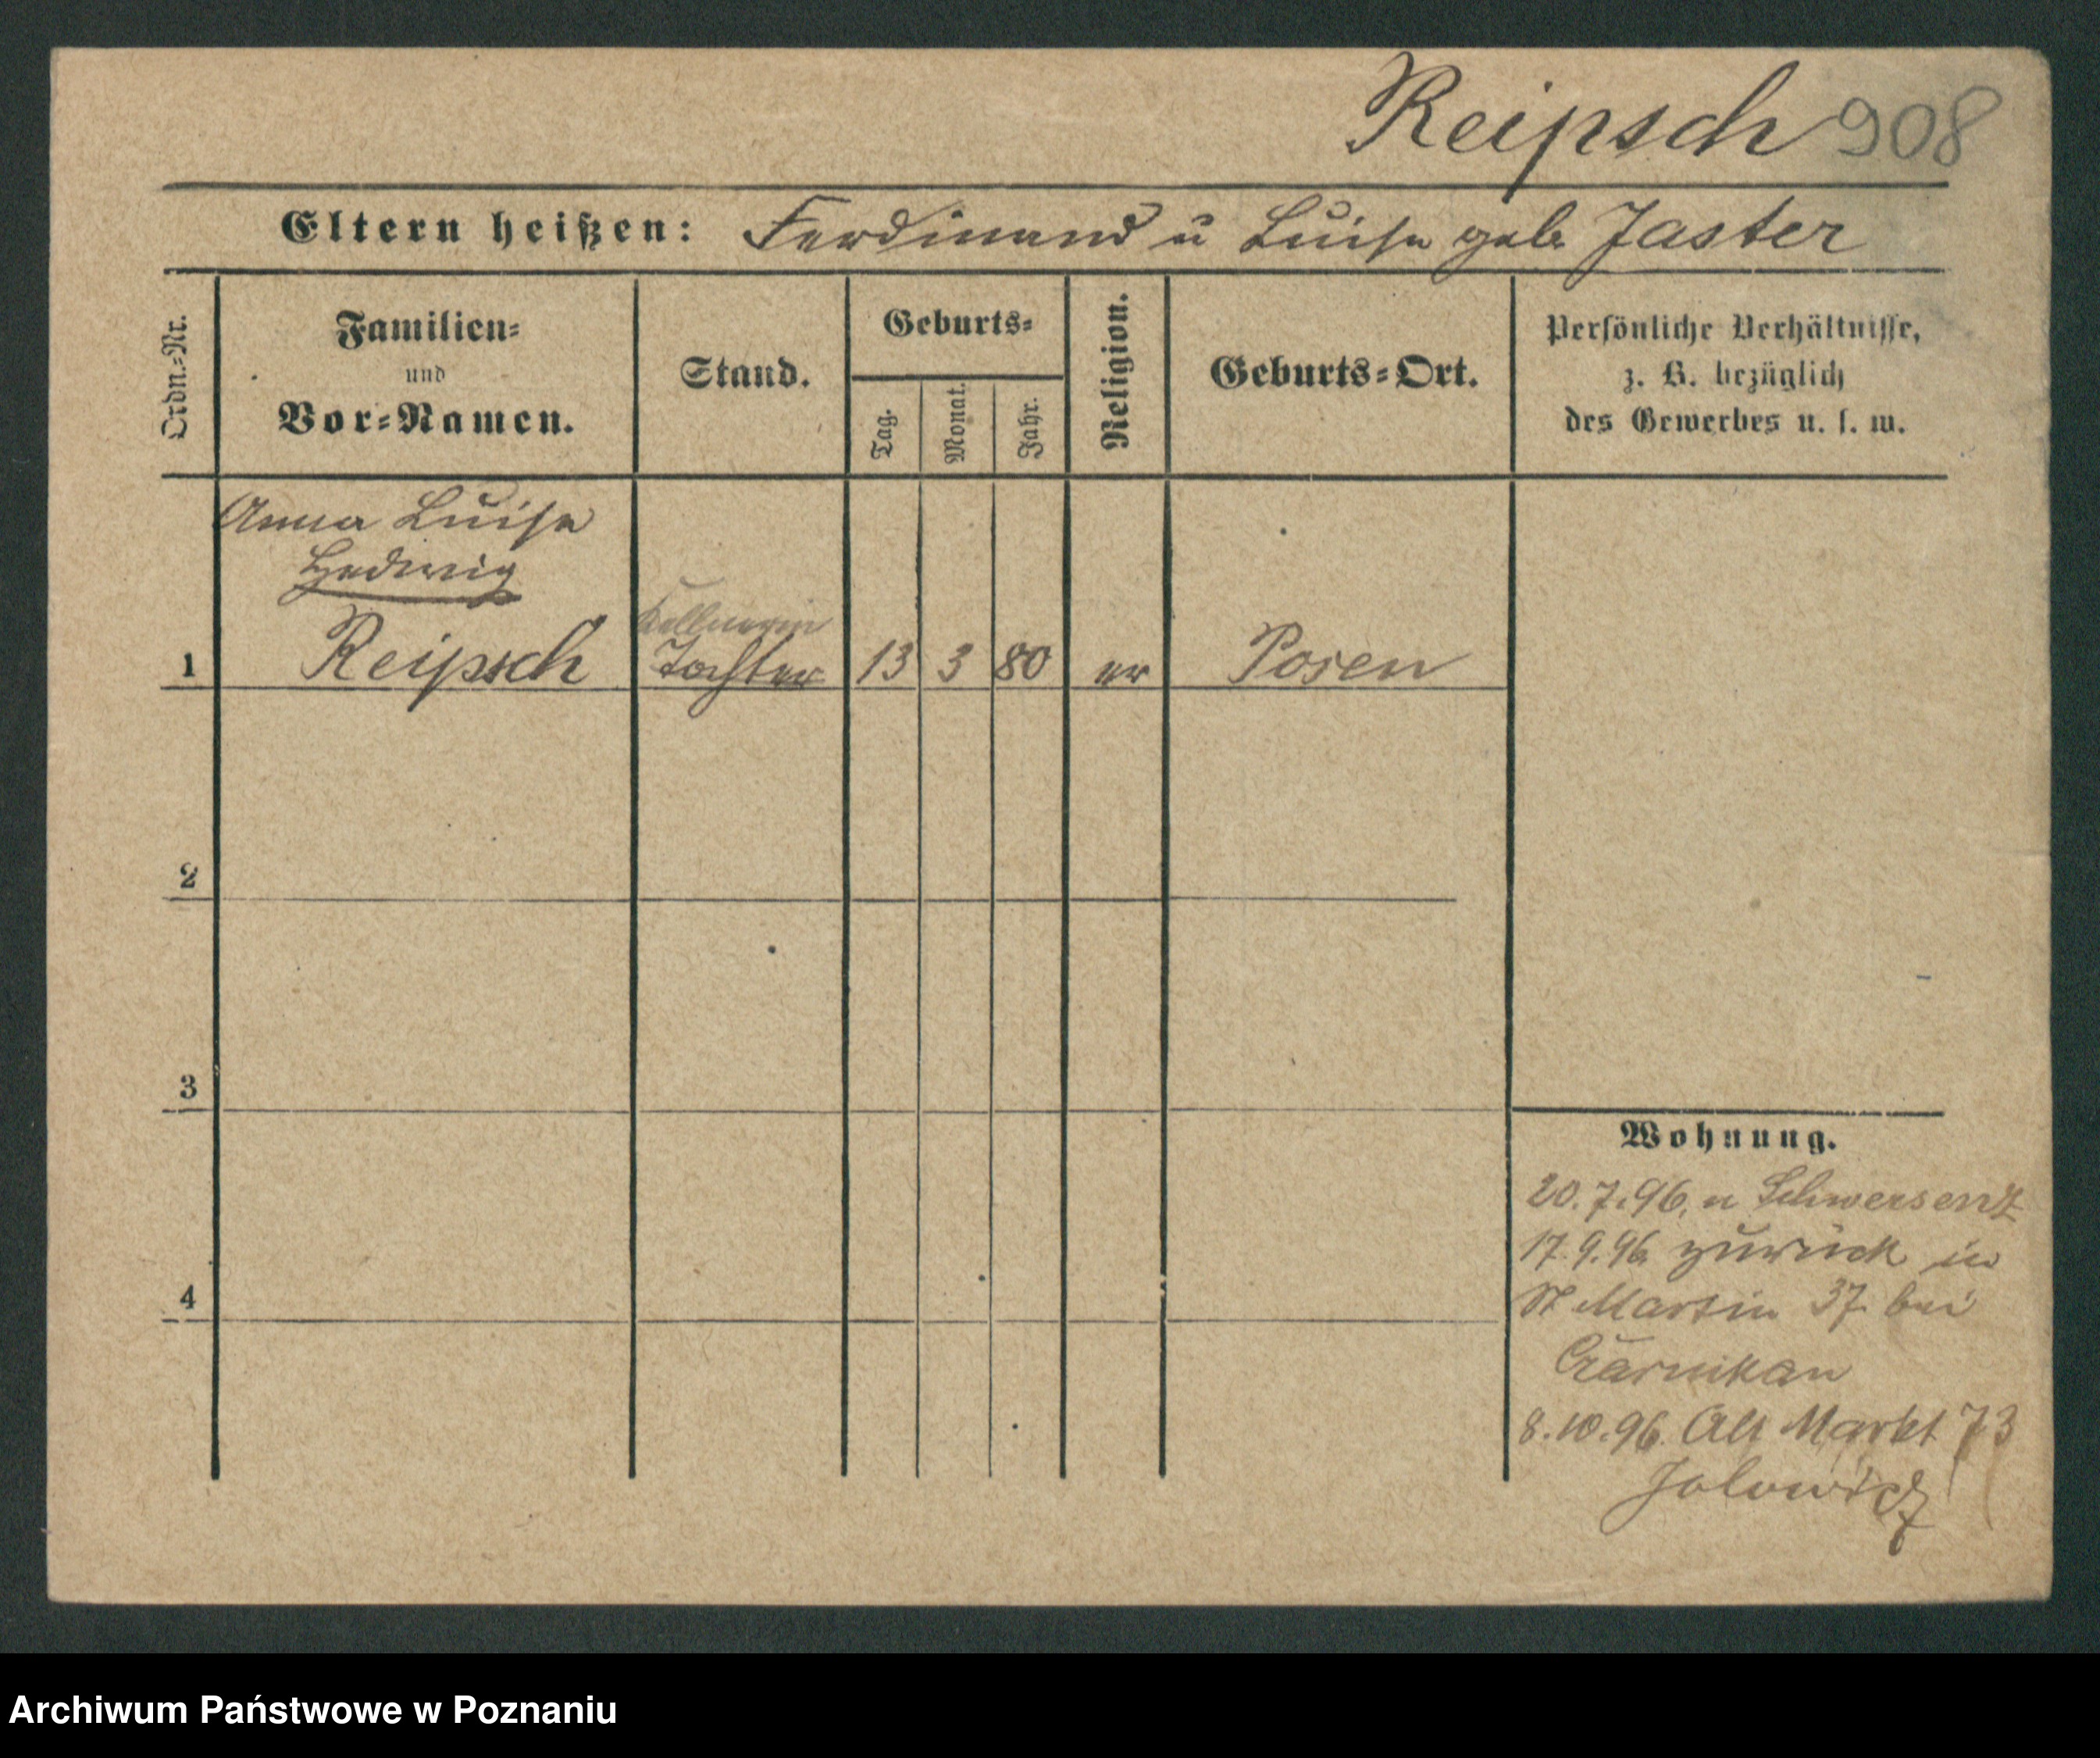 Reipsch 908
Eltern heißen: Ferdinand u Luise geb. Jaster
Ordn.=Nr.
Familien=
und
Vor=Namen.
Stand.
Geburts=
Tag.
Monat.
Jahr.
Religion.
Geburts=Ort.
Persönliche Verhältnisse,
z. B. bezüglich
des Gewerbes u. s. w.
Anna Luise
Hedwig
Kellnerin
1 Reipsch Tochter 13 3 80 ev Posen
2
3
4
Wohnung.
20.7.96. n Schwersenz
17.9.96 zurück in
St Martin 37 bei
Czarnikau
8.10.96. Alt Markt 73
Jolowicz
Archiwum Państwowe w Poznaniu